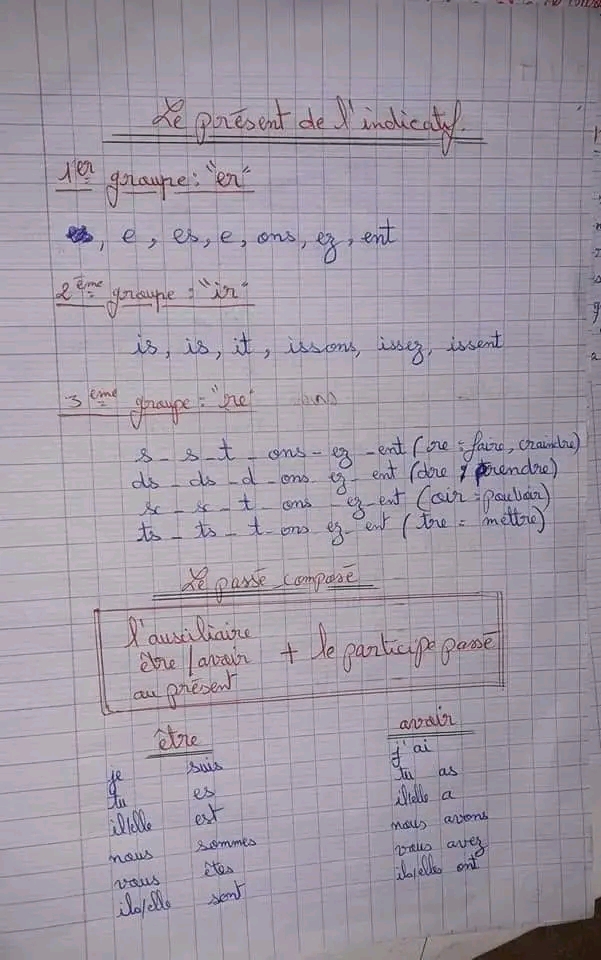 Le présent de l'indicatif.
1er groupe : "er"
, e, es, e, ons, ez, ent
2ème groupe : "ir"
is, is, it, issons, issez, issent
3ème groupe : "re"
s - s - t - ons - ez - ent (re : faire, craindre)
ds - ds - d - ons - ez - ent (dre : prendre)
x - x - t - ons - ez - ent (oir : pouvoir)
ts - ts - t - ons ez - ent (tre = mettre)
Le passé composé
l'auxiliaire
être / avoir + le participe passé
au présent
être avoir
je suis j'ai
tu es tu as
il/elle est il/elle a
nous sommes nous avons
vous êtes vous avez
ils/elle sont ils/elle ont